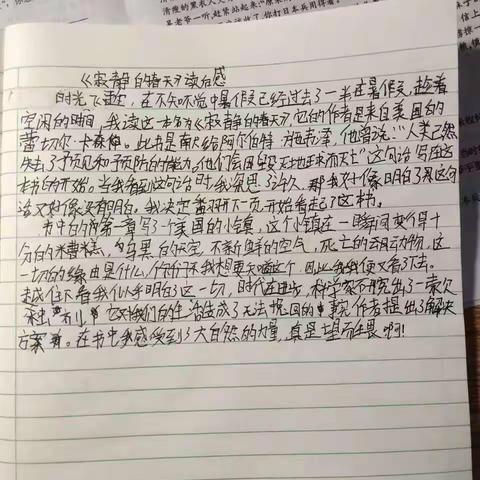 清瘦的黑衣人
《寂静的春天》读后感
时光飞逝，在不知不觉中暑假已经过去了一半在暑假，趁着
空闲的时间，我读这一本名为《寂静的春天》，它的作者是来自美国的
蕾切尔·卡森。此书是献给阿尔伯特·施韦泽，他曾说："人类已然
失去了预见和预防的能力。他们会因毁灭地球而灭亡"这句话写在这
本书的开始。当我看到这句话时，我深思了许久，那我好像明白了是这句
话又好像没有明白。我决定翻开下一页，开始看起了这本书。
书中的第一章写了美国的小镇，这个小镇在一瞬间变得十
分的糟糕，乌黑的天空，不新鲜的空气，死亡的动物，这
一切的缘由是什么，你们不我想要知道这个，因此我便又看了下去。
越往下看我似乎明白了这一切，时代在进步，科学家研究出了一款
杀虫剂，它对我们的生活造成了无法挽回的事，作者提出了解决
方案。在书中我感受到了大自然的力量，真是望而生畏啊！